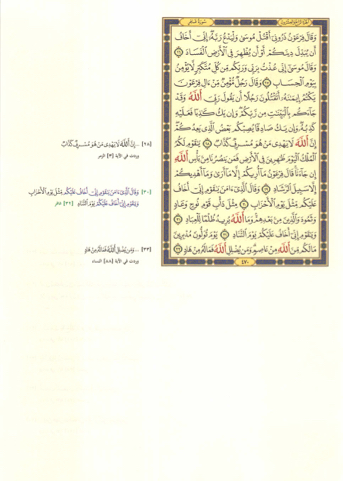 الجزء الرابع والعشرون
سورة غافر
وَقَالَ فِرْعَوْنُ ذَرُونِىٓ أَقْتُلْ مُوسَىٰ وَلْيَدْعُ رَبَّهُۥٓ إِنِّىٓ أَخَافُ
أَن يُبَدِّلَ دِينَكُمْ أَوْ أَن يُظْهِرَ فِى ٱلْأَرْضِ ٱلْفَسَادَ ٢٦
وَقَالَ مُوسَىٰٓ إِنِّى عُذْتُ بِرَبِّى وَرَبِّكُم مِّن كُلِّ مُتَكَبِّرٍ لَّا يُؤْمِنُ
بِيَوْمِ ٱلْحِسَابِ ٢٧ وَقَالَ رَجُلٌ مُّؤْمِنٌ مِّنْ ءَالِ فِرْعَوْنَ
يَكْتُمُ إِيمَٰنَهُۥٓ أَتَقْتُلُونَ رَجُلًا أَن يَقُولَ رَبِّىَ ٱللَّهُ وَقَدْ
جَآءَكُم بِٱلْبَيِّنَٰتِ مِن رَّبِّكُمْ وَإِن يَكُ كَٰذِبًا فَعَلَيْهِ
كَذِبُهُۥ وَإِن يَكُ صَادِقًا يُصِبْكُم بَعْضُ ٱلَّذِى يَعِدُكُمْ
إِنَّ ٱللَّهَ لَا يَهْدِى مَنْ هُوَ مُسْرِفٌ كَذَّابٌ ٢٨ يَٰقَوْمِ لَكُمُ
ٱلْمُلْكُ ٱلْيَوْمَ ظَٰهِرِينَ فِى ٱلْأَرْضِ فَمَن يَنصُرُنَا مِنۢ بَأْسِ ٱللَّهِ
إِن جَآءَنَا قَالَ فِرْعَوْنُ مَآ أُرِيكُمْ إِلَّا مَآ أَرَىٰ وَمَآ أَهْدِيكُمْ
إِلَّا سَبِيلَ ٱلرَّشَادِ ٢٩ وَقَالَ ٱلَّذِىٓ ءَامَنَ يَٰقَوْمِ إِنِّىٓ أَخَافُ
عَلَيْكُم مِّثْلَ يَوْمِ ٱلْأَحْزَابِ ٣٠ مِثْلَ دَأْبِ قَوْمِ نُوحٍ وَعَادٍ
وَثَمُودَ وَٱلَّذِينَ مِنۢ بَعْدِهِمْ وَمَا ٱللَّهُ يُرِيدُ ظُلْمًا لِّلْعِبَادِ ٣١
وَيَٰقَوْمِ إِنِّىٓ أَخَافُ عَلَيْكُمْ يَوْمَ ٱلتَّنَادِ ٣٢ يَوْمَ تُوَلُّونَ مُدْبِرِينَ
مَا لَكُم مِّنَ ٱللَّهِ مِنْ عَاصِمٍ وَمَن يُضْلِلِ ٱللَّهُ فَمَا لَهُۥ مِنْ هَادٍ ٣٣
٤٧٠
[٢٨] ... إِنَّ ٱللَّهَ لَا يَهْدِى مَنْ هُوَ مُسْرِفٌ كَذَّابٌ
وردت في الآية [٣] الزمر
[٣٠] وَقَالَ ٱلَّذِىٓ ءَامَنَ يَٰقَوْمِ إِنِّىٓ أَخَافُ عَلَيْكُم مِّثْلَ يَوْمِ ٱلْأَحْزَابِ
وَيَٰقَوْمِ إِنِّىٓ أَخَافُ عَلَيْكُمْ يَوْمَ ٱلتَّنَادِ [٣٢] غافر
[٣٣] ... وَمَن يُضْلِلِ ٱللَّهُ فَمَا لَهُۥ مِنْ هَادٍ
وردت في الآية [٨٨] النساء